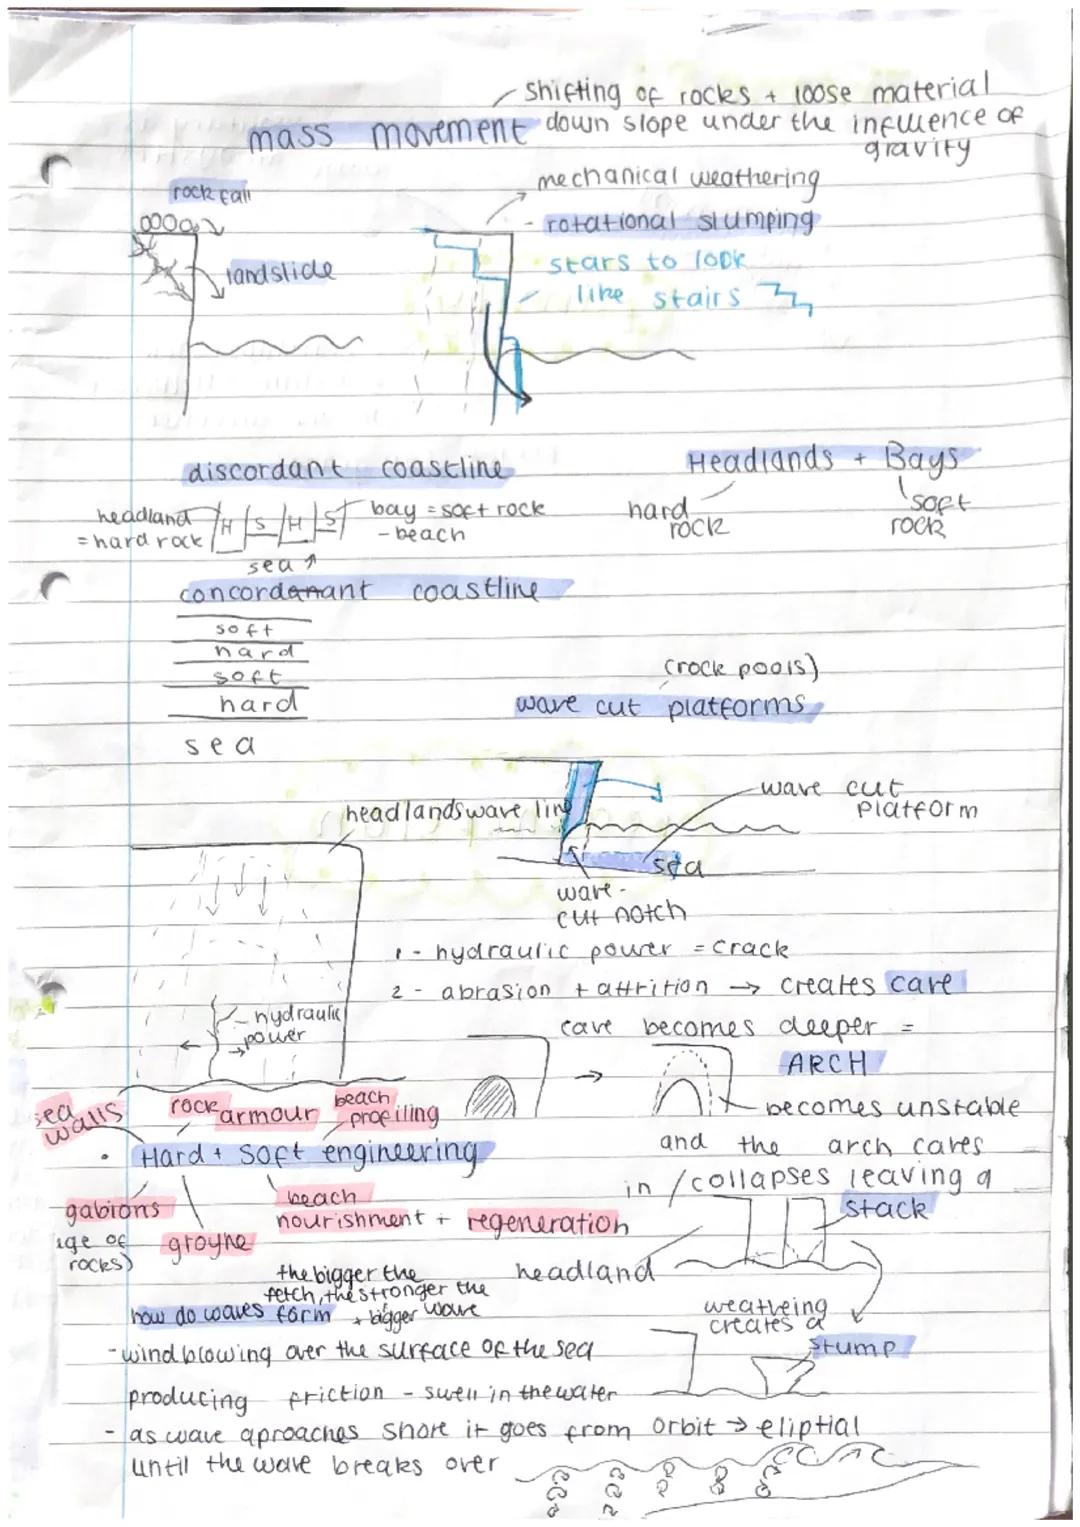 shifting of rocks + loose material
mass movement down slope under the influence of
gravity
rock fall
mechanical weathering
- rotational slumping
landslide
stars to look
like stairs
discordant coastline
Headlands + Bays
headland
= hard rock
H S H S
bay = soft rock
- beach
sea
hard
rock
soft
rock
concordanant coastline
soft
hard
soft
hard
sea
(rock pools)
wave cut platforms
headlands wave line
wave cut
platform
sea
wave-
cut notch
1 - hydraulic power = crack
2 - abrasion + attrition → creates cave
hydraulic
power
cave becomes deeper =
ARCH
becomes unstable
and the arch caves
in / collapses leaving a
stack
headland
weatheing
creates a
stump
sea
walls
rock armour
beach
profiling
• Hard + Soft engineering
gabions
age of
rocks)
groyne
beach
nourishment + regeneration
the bigger the
fetch, the stronger the
+ bigger wave
how do waves form
- wind blowing over the surface of the sea
producing friction - swell in the water
- as wave aproaches shore it goes from orbit → eliptial
until the wave breaks over